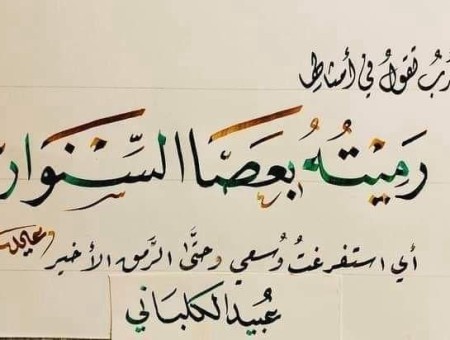 تقولُ في أمثالها
رَمَيْتُهُ بِعَصَا السِّنْوَار
أي استفرغتُ وُسعي وحتَّى الرَّمق الأخير
عبيد الكلباني